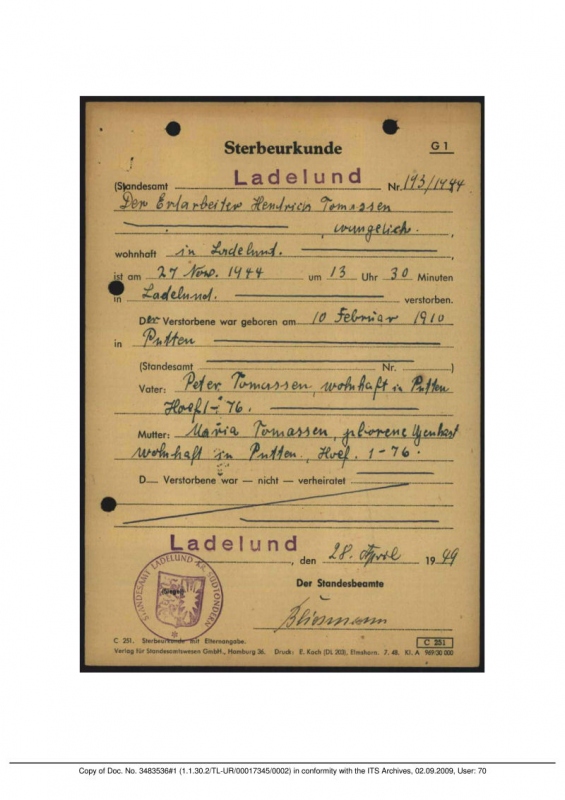 Sterbeurkunde G 1
(Standesamt Ladelund Nr. 193/1944
Der Erdarbeiter Hendrich Tomassen
, evangelisch.
wohnhaft in Ladelund. ,
ist am 27 Nov. 1944 um 13 Uhr 30 Minuten
in Ladelund. verstorben.
Der Verstorbene war geboren am 10 Februar 1910
in Putten
(Standesamt Nr. )
Vater: Peter Tomassen, wohnhaft in Putten
Hoef 1-76.
Mutter: Maria Tomassen, geborene
wohnhaft in Putten, Hoef. 1-76.
D Verstorbene war — nicht — verheiratet
Ladelund , den 28. April 1949
STANDESAMT LADELUND KR. SÜDTONDERN
(Siegel)
Der Standesbeamte
C 251. Sterbeurkunde mit Elternangabe. C 251
Verlag für Standesamtswesen GmbH., Hamburg 36. Druck: E. Koch (DL 203), Elmshorn. 7. 48. Kl. A 969/30 000
Copy of Doc. No. 3483536#1 (1.1.30.2/TL-UR/00017345/0002) in conformity with the ITS Archives, 02.09.2009, User: 70